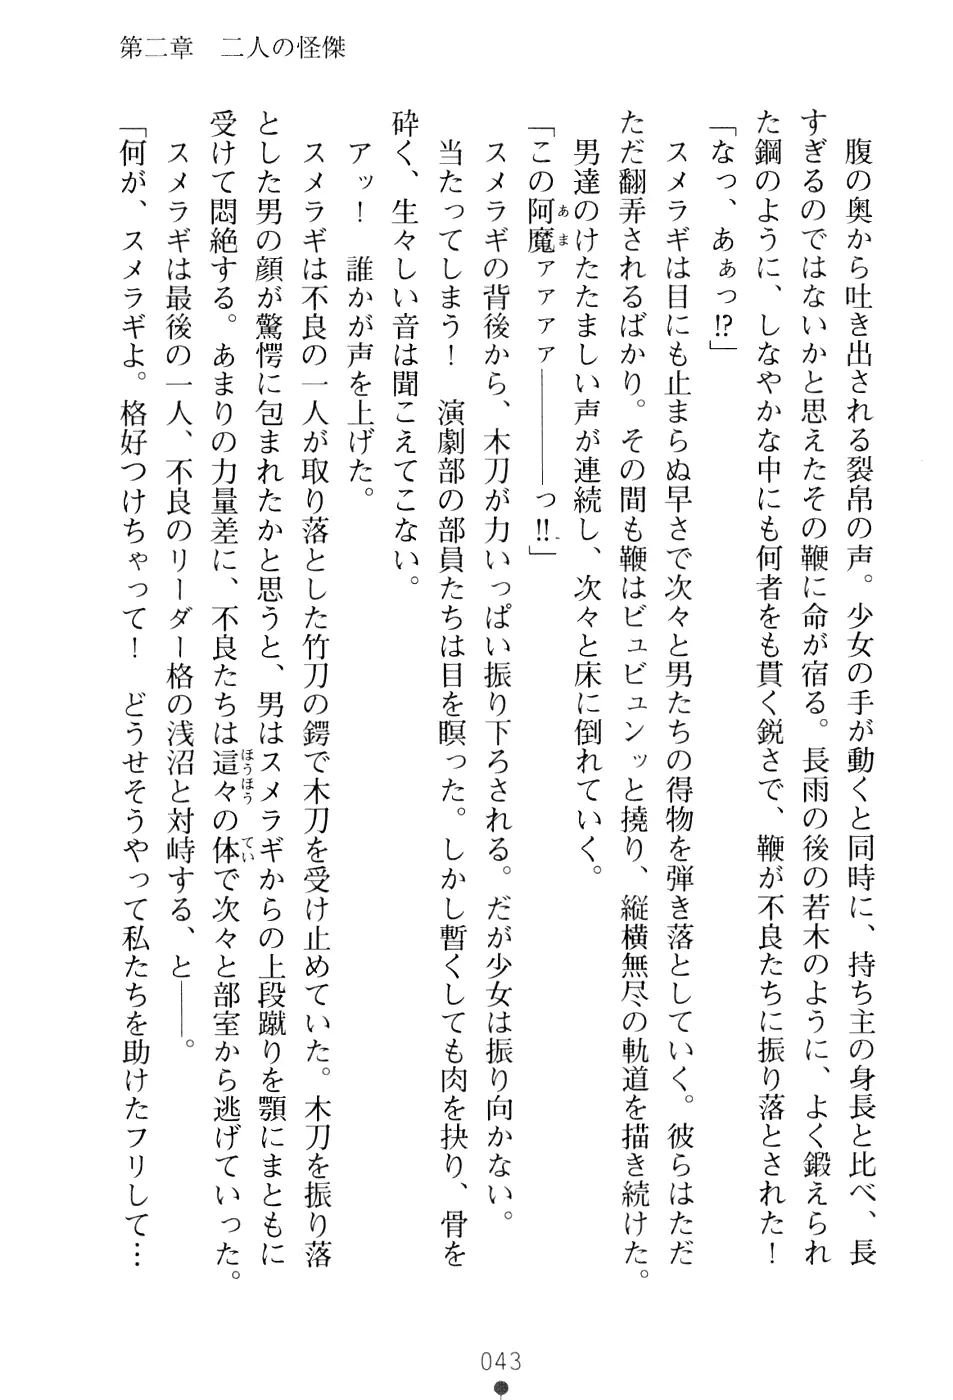 第二章　二人の怪傑
　腹の奥から吐き出される裂帛の声。少女の手が動くと同時に、持ち主の身長と比べ、長
すぎるのではないかと思えたその鞭に命が宿る。長雨の後の若木のように、よく鍛えられ
た鋼のように、しなやかな中にも何者をも貫く鋭さで、鞭が不良たちに振り落とされた！
「なっ、あぁっ⁉」
　スメラギは目にも止まらぬ早さで次々と男たちの得物を弾き落としていく。彼らはただ
ただ翻弄されるばかり。その間も鞭はビュビュンッと撓り、縦横無尽の軌道を描き続けた。
　男達のけたたましい声が連続し、次々と床に倒れていく。
「この阿魔ァァァァ――――っ‼」
　スメラギの背後から、木刀が力いっぱい振り下ろされる。だが少女は振り向かない。
　当たってしまう！　演劇部の部員たちは目を瞑った。しかし暫くしても肉を抉り、骨を
砕く、生々しい音は聞こえてこない。
　アッ！　誰かが声を上げた。
　スメラギは不良の一人が取り落とした竹刀の鍔で木刀を受け止めていた。木刀を振り落
とした男の顔が驚愕に包まれたかと思うと、男はスメラギからの上段蹴りを顎にまともに
受けて悶絶する。あまりの力量差に、不良たちは這々の体で次々と部室から逃げていった。
　スメラギは最後の一人、不良のリーダー格の浅沼と対峙する、と――。
「何が、スメラギよ。格好つけちゃって！　どうせそうやって私たちを助けたフリして…
043